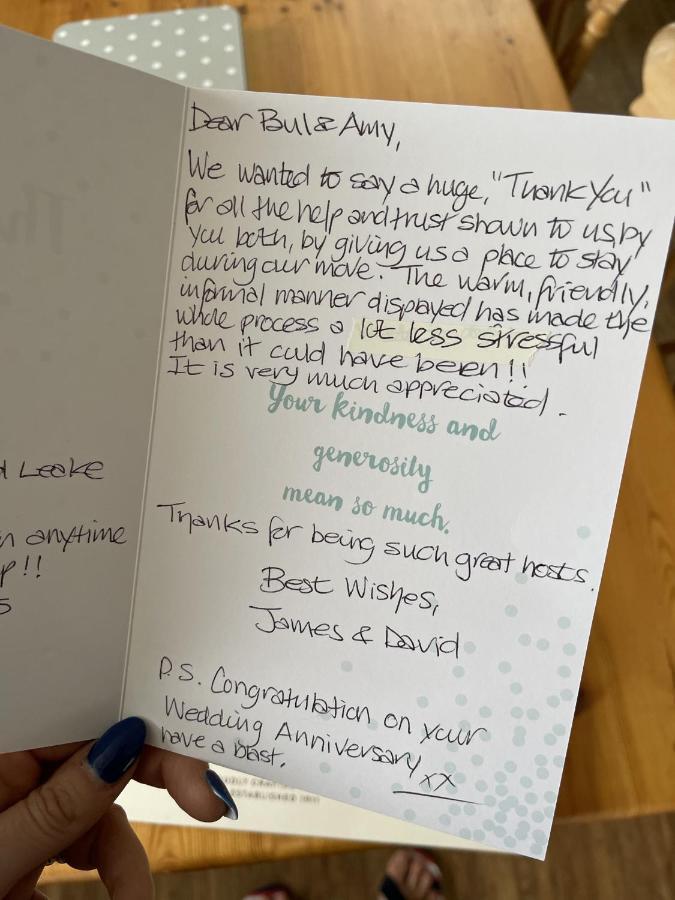 Dear Bul & Amy,
We wanted to say a huge, "Thank You"
for all the help and trust shown to us, by
you both, by giving us a place to stay
during our move. The warm, friendly,
informal manner displayed has made the
whole process a lot less stressful
than it could have been!!
It is very much appreciated.
Your kindness and
generosity
mean so much.
Thanks for being such great hosts.
Best Wishes,
James & David
P.S. Congratulation on your
Wedding Anniversary
have a blast.
xx
Leeke
anytime
!!
ESTABLISHED